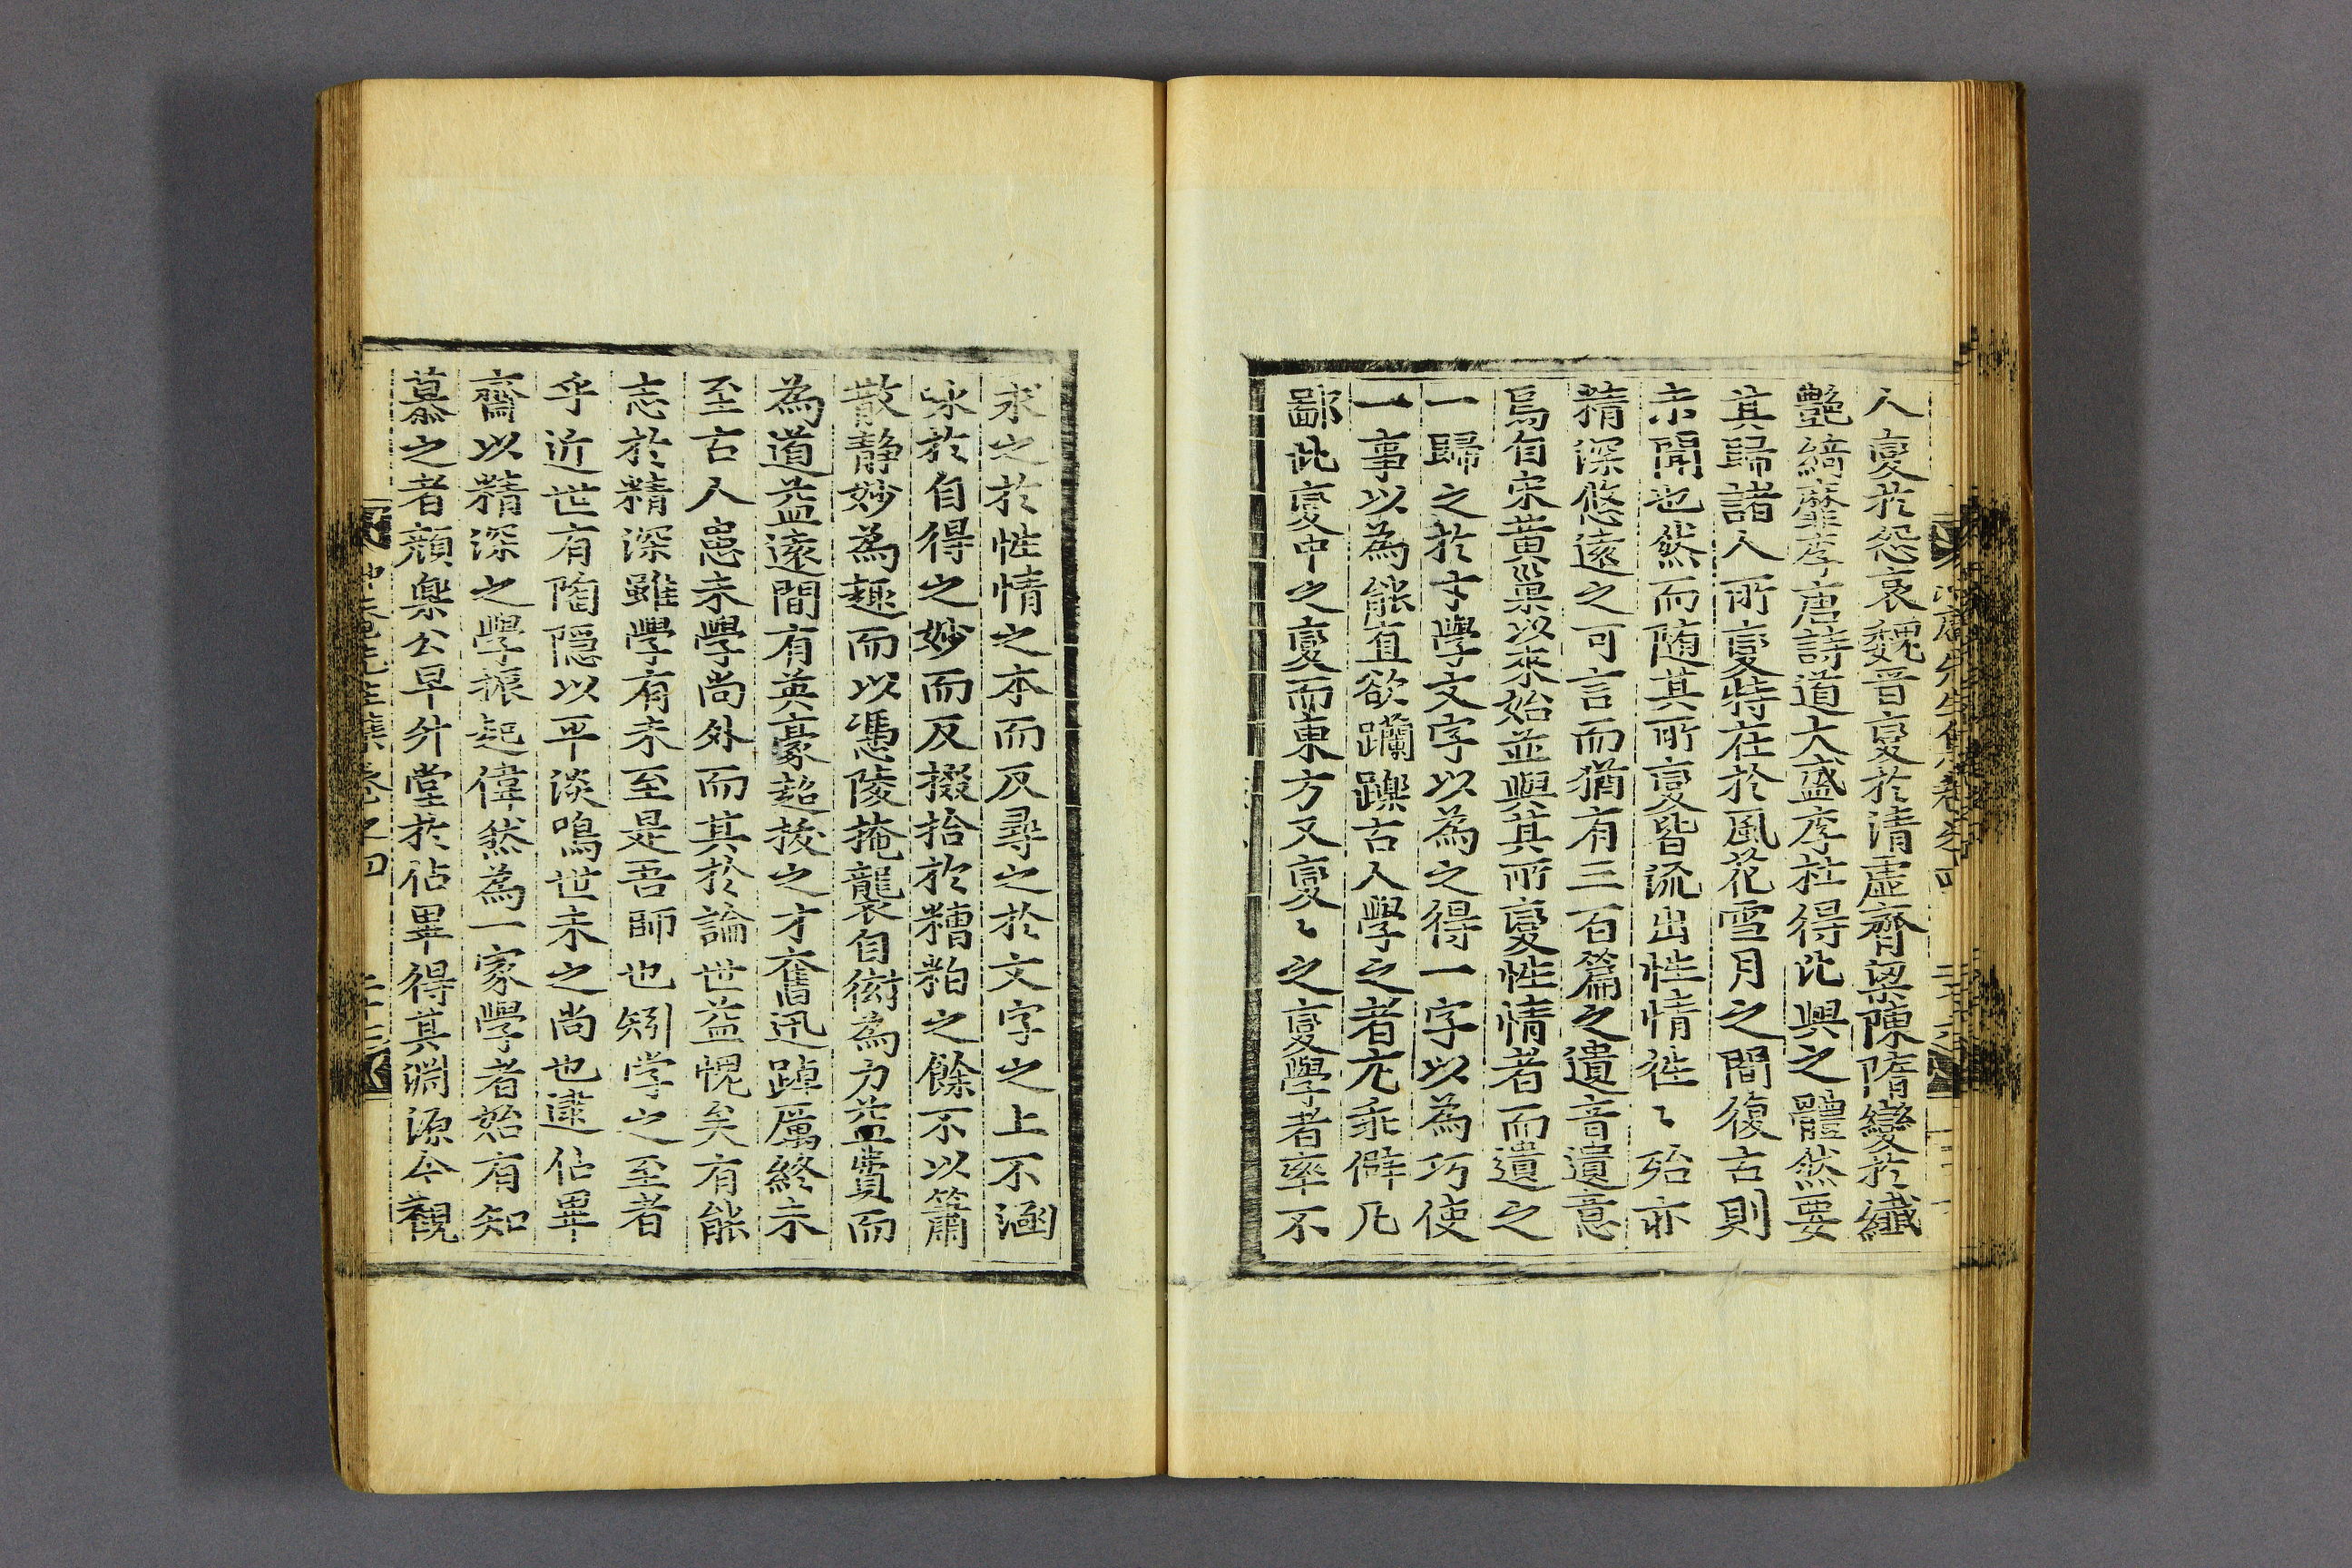 人變於怨哀魏晉變於清虛齊梁陳隋變於纖
艶綺靡李唐詩道大盛李杜得比興之體然要
其歸諸人所變特在於風花雪月之間復古則
未聞也然而随其所變皆流出性情徃〻殆亦
精深悠遠之可言而猶有三百篇之遺音遺意
焉自宋黃巢以來始並興其所變性情者而遺之
一歸之於才學文字以為之得一字以為巧使
一事以為能直欲躪躒古人學之者尤乖僻凡
鄙此變中之變而東方又變〻之變學者率不
求之於性情之本而反尋之於文字之上不涵
咏於自得之妙而反掇拾於糟粕之餘不以簫
散静妙為趣而以憑陵掩襲自衒為力益費而
為道益遠間有英豪超拔之才奮迅踔厲終未
至古人患未學尚外而其於論世益愧矣有能
志於精深雖學有未至是吾師也矧学之至者
乎近世有陶隠以平淡鳴世未之尚也逮佔畢
齋以精深之學振起偉然為一家學者始有知
慕之者頼㮚公早升堂於佔畢得其淵源今觀
冲庵先生集卷之四